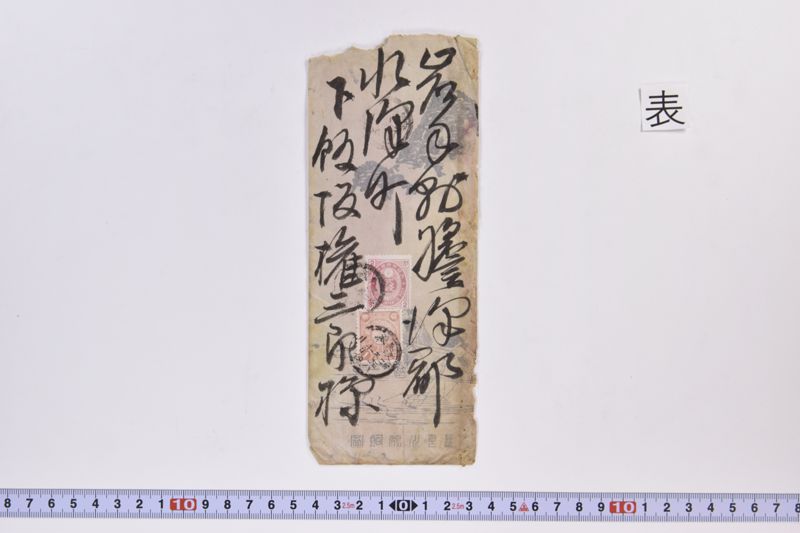 表
岩手縣膽澤郡
水澤町
下飯坂権三郎様
8 7 6 5 4 3 2 1 10 9 8 7 6 5 4 3 2.5m 2 1 0 1 2 2.5m 3 4 5 6 7 8 9 10 1 2 3 4 5 6 7 8